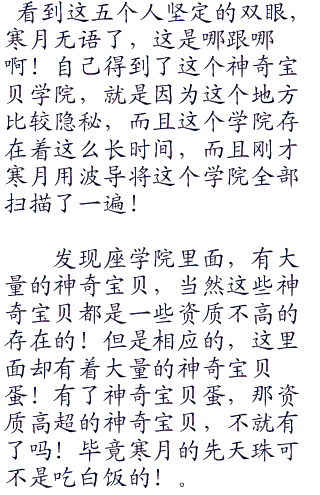 看到这五个人坚定的双眼，
寒月无语了，这是哪跟哪
啊！自己得到了这个神奇宝
贝学院，就是因为这个地方
比较隐秘，而且这个学院存
在着这么长时间，而且刚才
寒月用波导将这个学院全部
扫描了一遍！
发现座学院里面，有大
量的神奇宝贝，当然这些神
奇宝贝都是一些资质不高的
存在的！但是相应的，这里
面却有着大量的神奇宝贝
蛋！有了神奇宝贝蛋，那资
质高超的神奇宝贝，不就有
了吗！毕竟寒月的先天珠可
不是吃白饭的！。